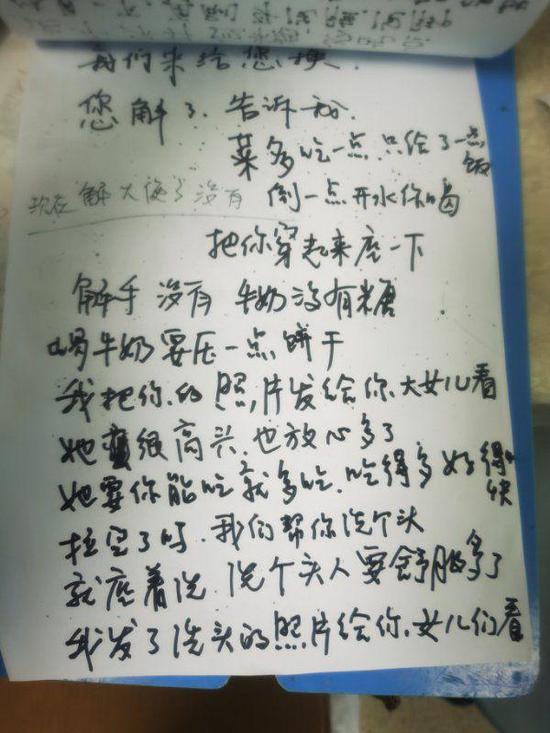 我们来给您换.
您解了.告诉我.
菜多吃一点只给了一点饭
现在解大便了没有 倒一点开水你喝
把你穿起来座一下
解手没有 牛奶没有糖
喝牛奶要压一点饼干
我把你的照片发给你大女儿看
她很高头.也放心多了
她要你能吃就多吃.吃得多好得快
拉空了吗.我们帮你洗个头
就座着洗.洗个头人要舒服多了
我发了洗头的照片给你女儿们看